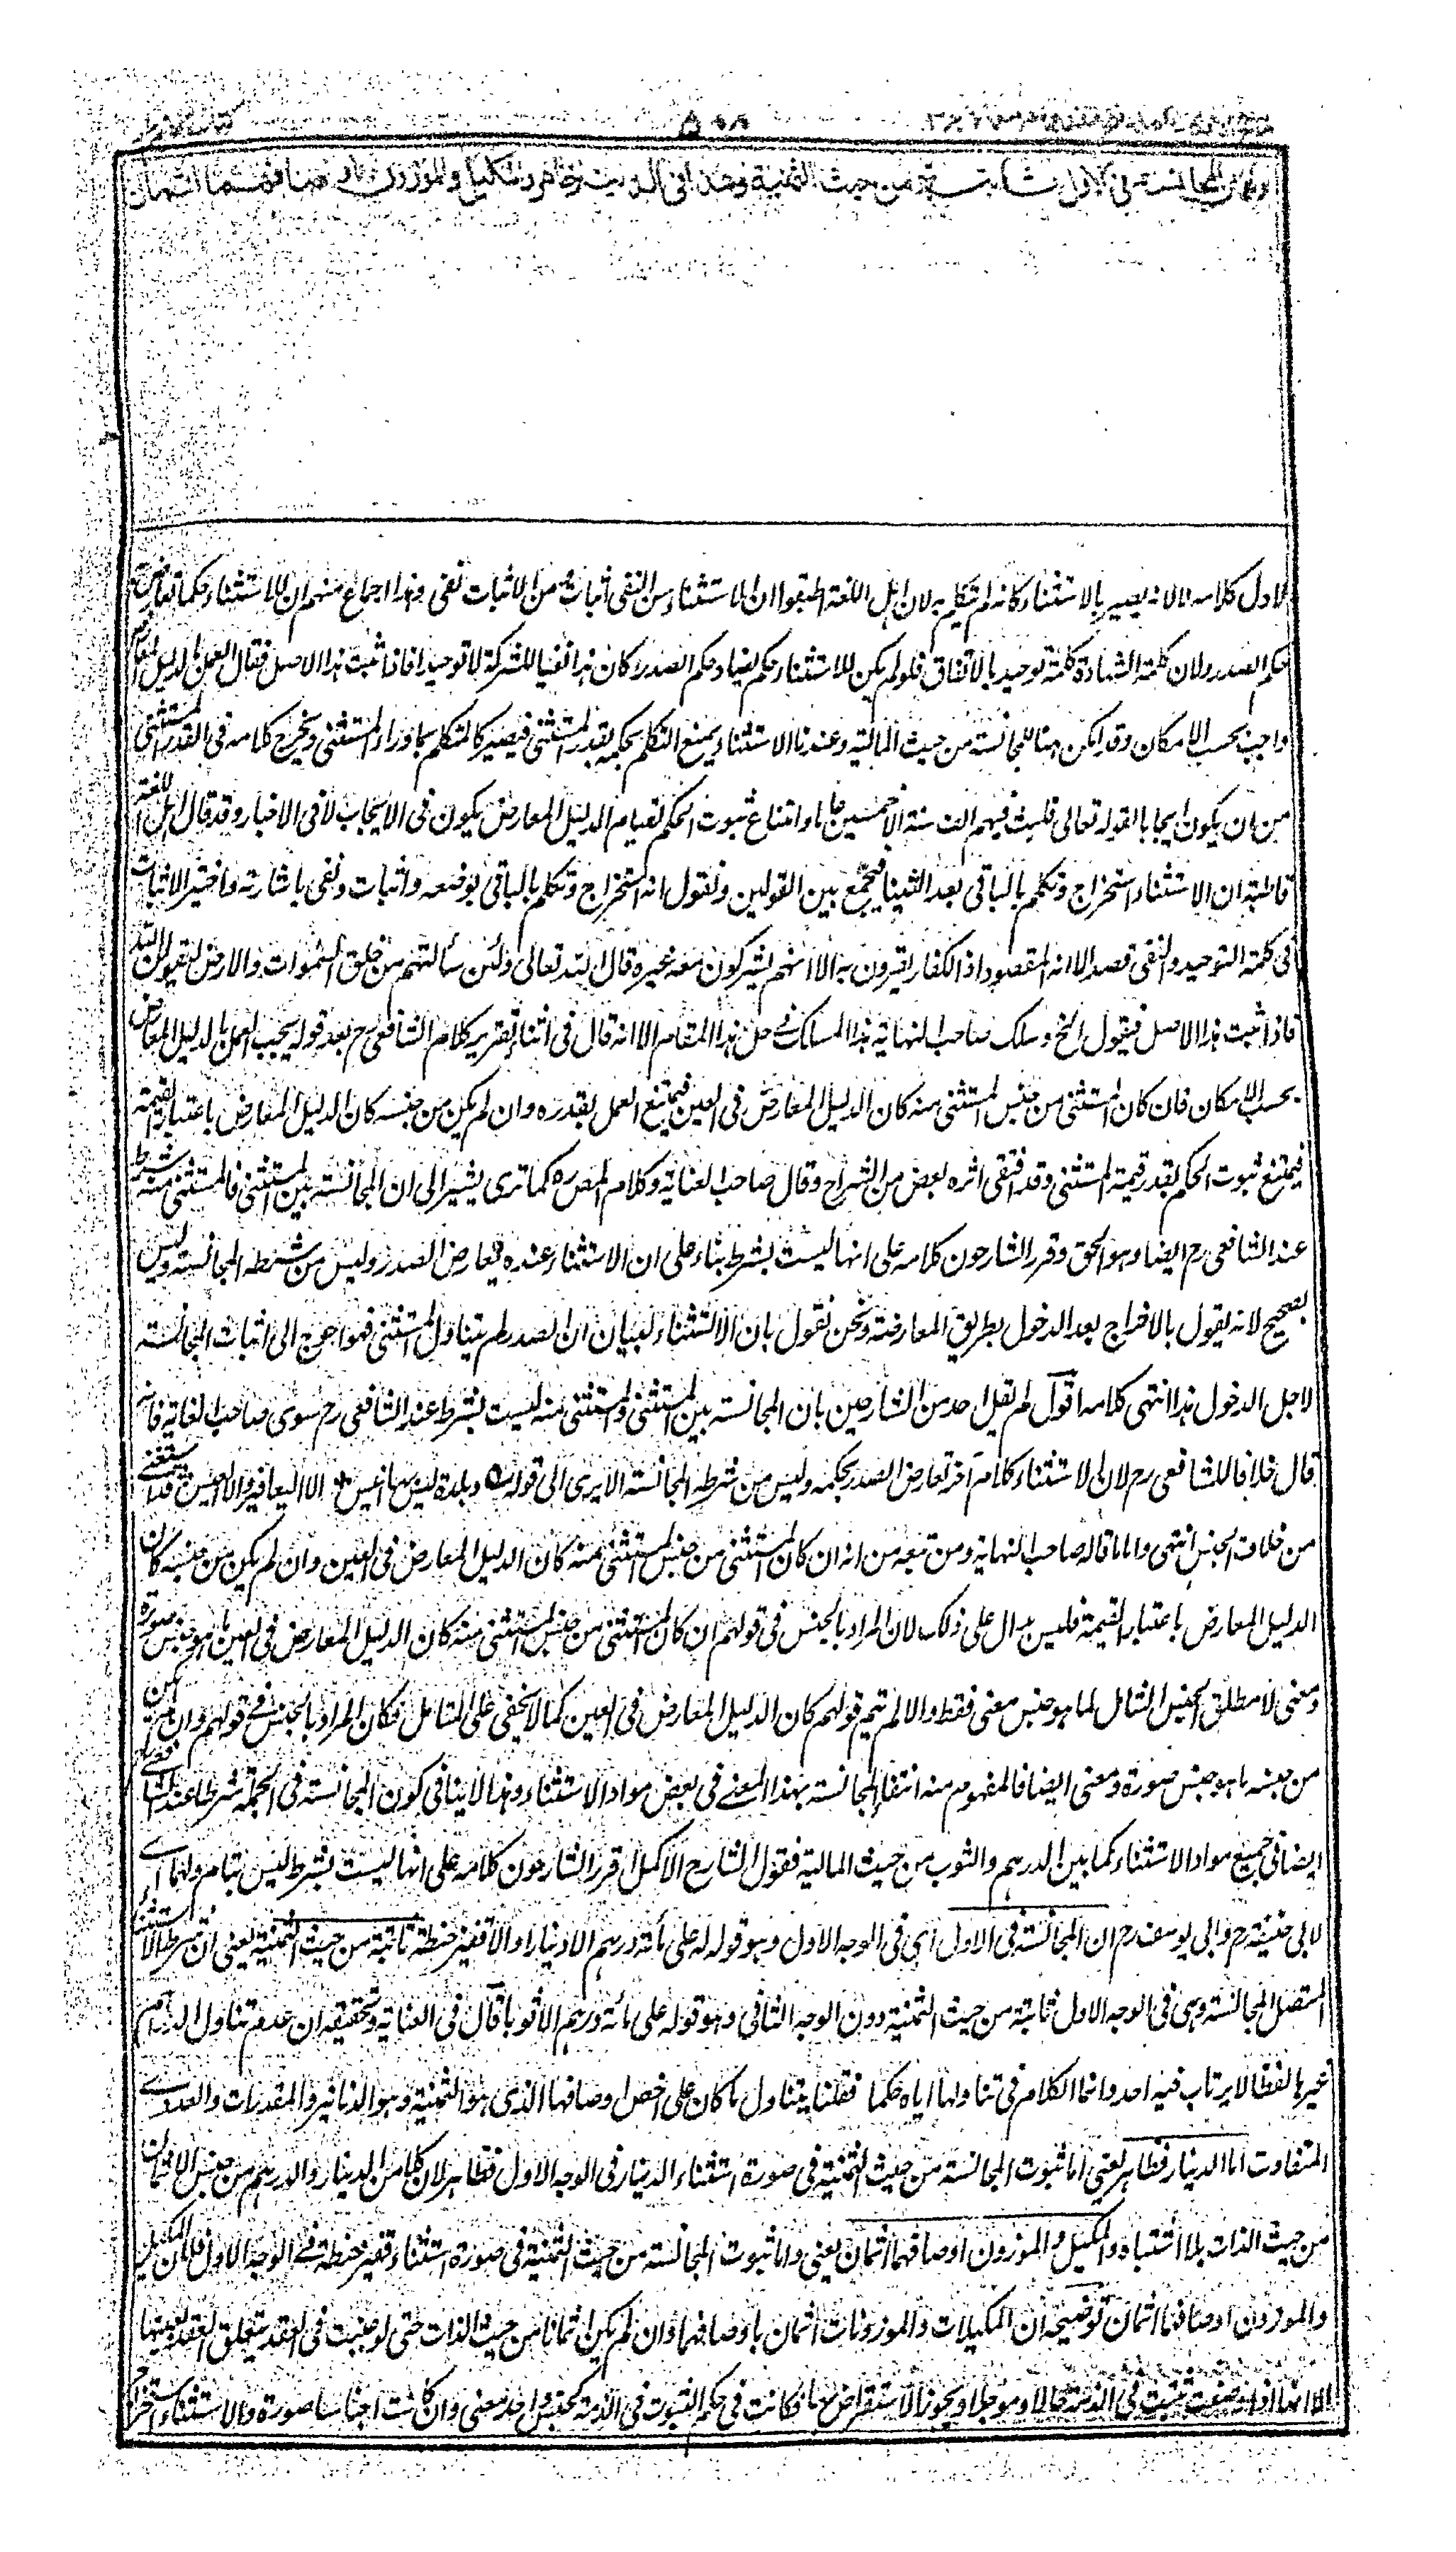 ٥٠٨
ولهما ان المجانسة فى الاول ثابتة من حيث الثمنية وهذا فى الدينار ظاهر والمكيل والموزون اوصافهما اثمان
الاول كلامه الا انه يصير بالاستثناء كانه لم يتكلم به لان اهل اللغة اطبقوا ان الاستثناء من النفى اثبات ومن الاثبات نفى وهذا اجماع منهم ان للاستثناء حكما تعارض به
حكم الصدر ولان كلمة الشهادة كلمة توحيد بالاتفاق فلو لم يكن للاستثناء حكم يضاد حكم الصدر لكان هذا نفيا للشركة لا توحيدا فاذا ثبت هذا الاصل فقال العمل بالدليل المعارض
واجب بحسب الامكان وقد امكن هنا للمجانسة من حيث المالية وعندنا الاستثناء يمنع التكلم بحكمه بقدر المستثنى فيصير كالتكلم بما وراء المستثنى ويخرج كلامه فى القدر المستثنى
من ان يكون ايجابا لقوله تعالى فلبث فيهم الف سنة الا خمسين عاما وامتناع ثبوت الحكم لقيام الدليل المعارض يكون فى الايجاب لا فى الاخبار وقد قال اهل اللغة
قاطبة ان الاستثناء استخراج وتكلم بالباقى بعد الثنيا فيجمع بين القولين ونقول انه استخراج وتكلم بالباقى بوضعه واثبات ونفى باشارته واختير الاثبات
فى كلمة التوحيد والنفى قصدا لانه المقصود اذ الكفار يقرون به الا انهم يشركون معه غيره قال الله تعالى ولئن سألتهم من خلق السموات والارض ليقولن الله
فاذا ثبت هذا الاصل فيقول الخ وسلك صاحب النهاية هذا المسلك فى حل هذا المقام الا انه قال فى اثناء تقرير كلام الشافعى رح بعد قوله يجب العمل بالدليل المعارض
بحسب الامكان فان كان المستثنى من جنس المستثنى منه كان الدليل المعارض فى العين فيمتنع العمل بقدره وان لم يكن من جنسه كان الدليل المعارض باعتبار القيمة
فيمتنع ثبوت الحكم بقدر قيمة المستثنى وقد اقتفى اثره بعض من الشراح وقال صاحب العناية وكلام المص ره كما ترى يشير الى ان المجانسة بين المستثنى والمستثنى منه شرط
عند الشافعى رح ايضا وهو الحق وقرر الشارحون كلامه على انها ليست بشرط بناء على ان الاستثناء عنده يعارض الصدر وليس من شرطه المجانسة وليس
بصحيح لانه يقول بالاخراج بعد الدخول بطريق المعارضة ونحن نقول بان الاستثناء لبيان ان الصدر لم يتناول المستثنى فهو احوج الى اثبات المجانسة
لاجل الدخول هذا انتهى كلامه اقول لم يقل احد من الشارحين بان المجانسة بين المستثنى والمستثنى منه ليست بشرط عند الشافعى رح سوى صاحب الغاية فانه
قال خلافا للشافعى رح لان الاستثناء كلام آخر تعارض الصدر بحكمه وليس من شرطه المجانسة الا يرى الى قوله ۵ وبلدة ليس بها انيس * الا اليعافير والا العيس فقد استثنى
من خلاف الجنس انتهى واما ما قاله صاحب النهاية ومن تبعه من انه ان كان المستثنى من جنس المستثنى منه كان الدليل المعارض فى العين وان لم يكن من جنسه كان
الدليل المعارض باعتبار القيمة فليس بدال على ذلك لان المراد بالجنس فى قولهم ان كان المستثنى من جنس المستثنى منه كان الدليل المعارض فى العين ما هو جنس صورة
ومعنى لا مطلق الجنس الشامل لما هو جنس معنى فقط والا لم يتم قولهم كان الدليل المعارض فى العين كما لا يخفى على المتأمل فكان المراد بالجنس فى قولهم وان لم يكن
من جنسه ما هو جنس صورة ومعنى ايضا فالمفهوم منه انتفاء المجانسة بهذا المعنى فى بعض مواد الاستثناء وهذا لا ينافى كون المجانسة فى الجملة شرطا عند الشافعى
ايضا فى جميع مواد الاستثناء كما بين الدرهم والثوب من حيث المالية فقول الشارح الاكمل قرر الشارحون كلامه على انها ليست بشرط ليس بتام ولهما اى
لابى حنيفة رح وابى يوسف رح ان المجانسة فى الاول اى فى الوجه الاول وهو قوله له على مأته درهم الا دينارا والا قفيز حنطة ثابتة من حيث الثمنية يعنى ان شرط الاستثناء
المتصل المجانسة وهى فى الوجه الاول ثابتة من حيث الثمنية دون الوجه الثانى وهو قوله على مأته درهم الا ثوبا قال فى العناية وتحقيقه ان عدم تناول الدراهم
غيرها لفظا لا يرتاب فيه احد وانما الكلام فى تناولها اياه حكما فقلنا يتناول ما كان على اخص اوصافها الذى هو الثمنية وهو الدنانير والمقدرات والعددى
المتفاوت اما الدينار فظاهر يعنى اما ثبوت المجانسة من حيث الثمنية فى صورة استثناء الدينار فى الوجه الاول فظاهر لان كلا من الدينار والدرهم من جنس الاثمان
من حيث الذات بلا اشتباه والمكيل والموزون اوصافهما اثمان يعنى واما ثبوت المجانسة من حيث الثمنية فى صورة استثناء قفيز حنطة فى الوجه الاول فلان المكيل
والموزون اوصافهما اثمان توضيحه ان المكيلات والموزونات اثمان باوصافهما وان لم يكن اثمانا من حيث الذات حتى لو عينت فى العقد يتعلق العقد بعينها
الا انها اذا وصفت ثبتت فى الذمة حالا ومؤجلا ويجوز الاستقراض بها فكانت فى حكم الثبوت فى الذمة كجنس واحد معنى وان كانت اجناسا صورة والاستثناء استخراج